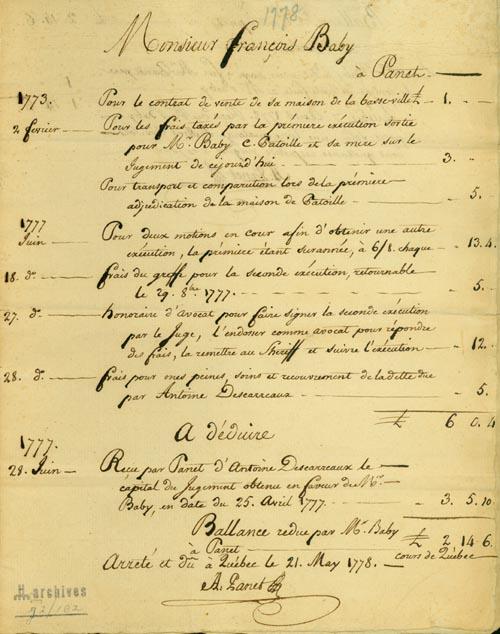 1778
Monsieur françois Baby
à Panet
1773. Pour le contrat de vente de sa maison de la basse-ville £ - 1. -
2 fevrier Pour les frais taxés par la prémiere exécution sortie
pour Mr. Baby C. Patoille et sa mere sur le
Jugement de cejourd'hui 3. -
Pour transport et comparution lors de la prémiere
adjudication de la maison de Patoille - 5.
1777
Juin Pour deux motions en cour afin d'obtenir une autre
exécution, la prémiere étant surannée, à 6/8. chaque - 13. 4.
18. do. frais du greffe pour la seconde exécution, retournable
le 29. 8bre 1777. - 5. -
27. do. honoraire d'Avocat pour faire signer la seconde exécution
par le Juge, l'endosser comme avocat pour répondre
des frais, la remettre au Sheriff et suivre l'exécution - 12.
28. do. frais pour mes peines, soins et recouvrement de la dette due
par Antoine Descarreaux - 5.
£ 6 0. 4
A déduire
1777.
28. Juin Reçu par Panet d'Antoine Descarreaux le
capital du Jugement obtenu en faveur de Mr.
Baby, en date du 25. Avril 1777. - 3. 5. 10
Ballance redue par Mr. Baby £ 2 14. 6.
à Panet cours de Québec
Arreté et dû à Québec le 21. May 1778.
A. Panet
archives